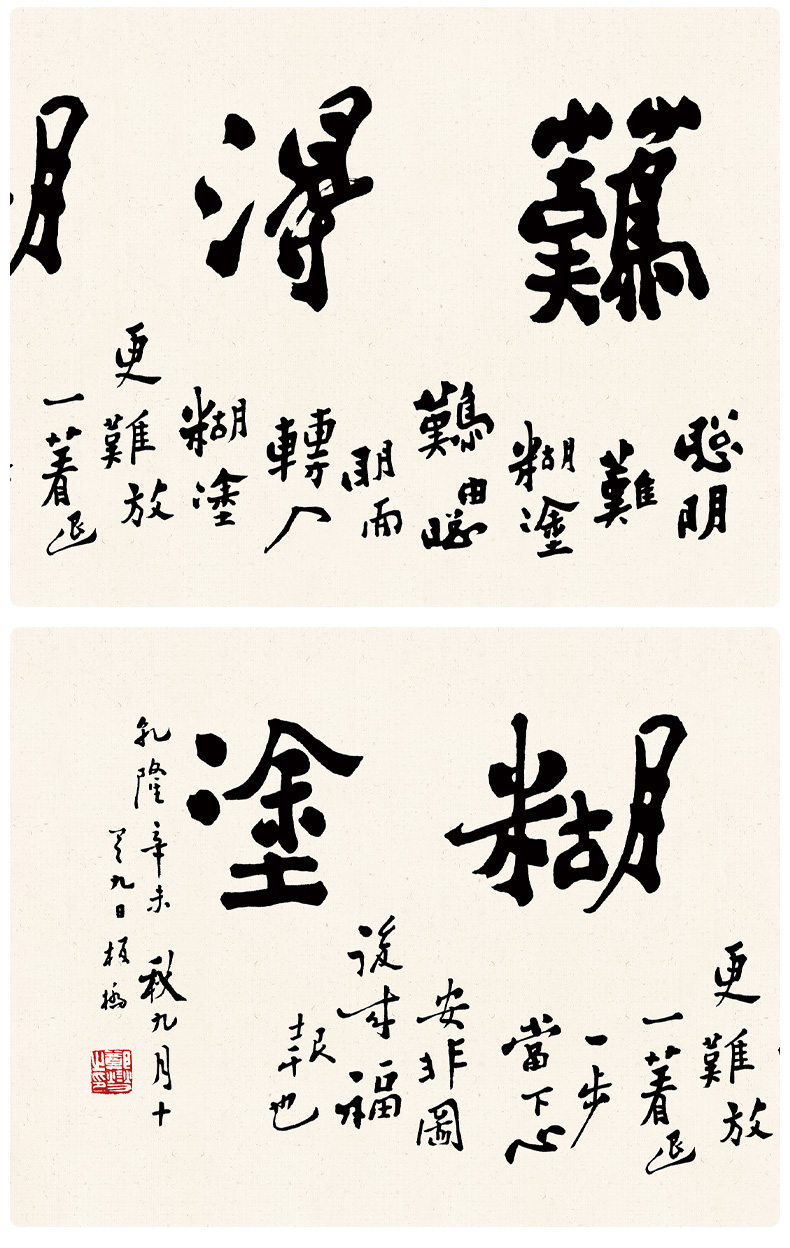 難得
聰明
難
糊塗
難由聰
明而
轉入
糊塗
更難放
一着退
糊塗
更難放
一着退
一步
當下心
安非圖
後來福
報也
乾隆辛未秋九月十
九日板橋